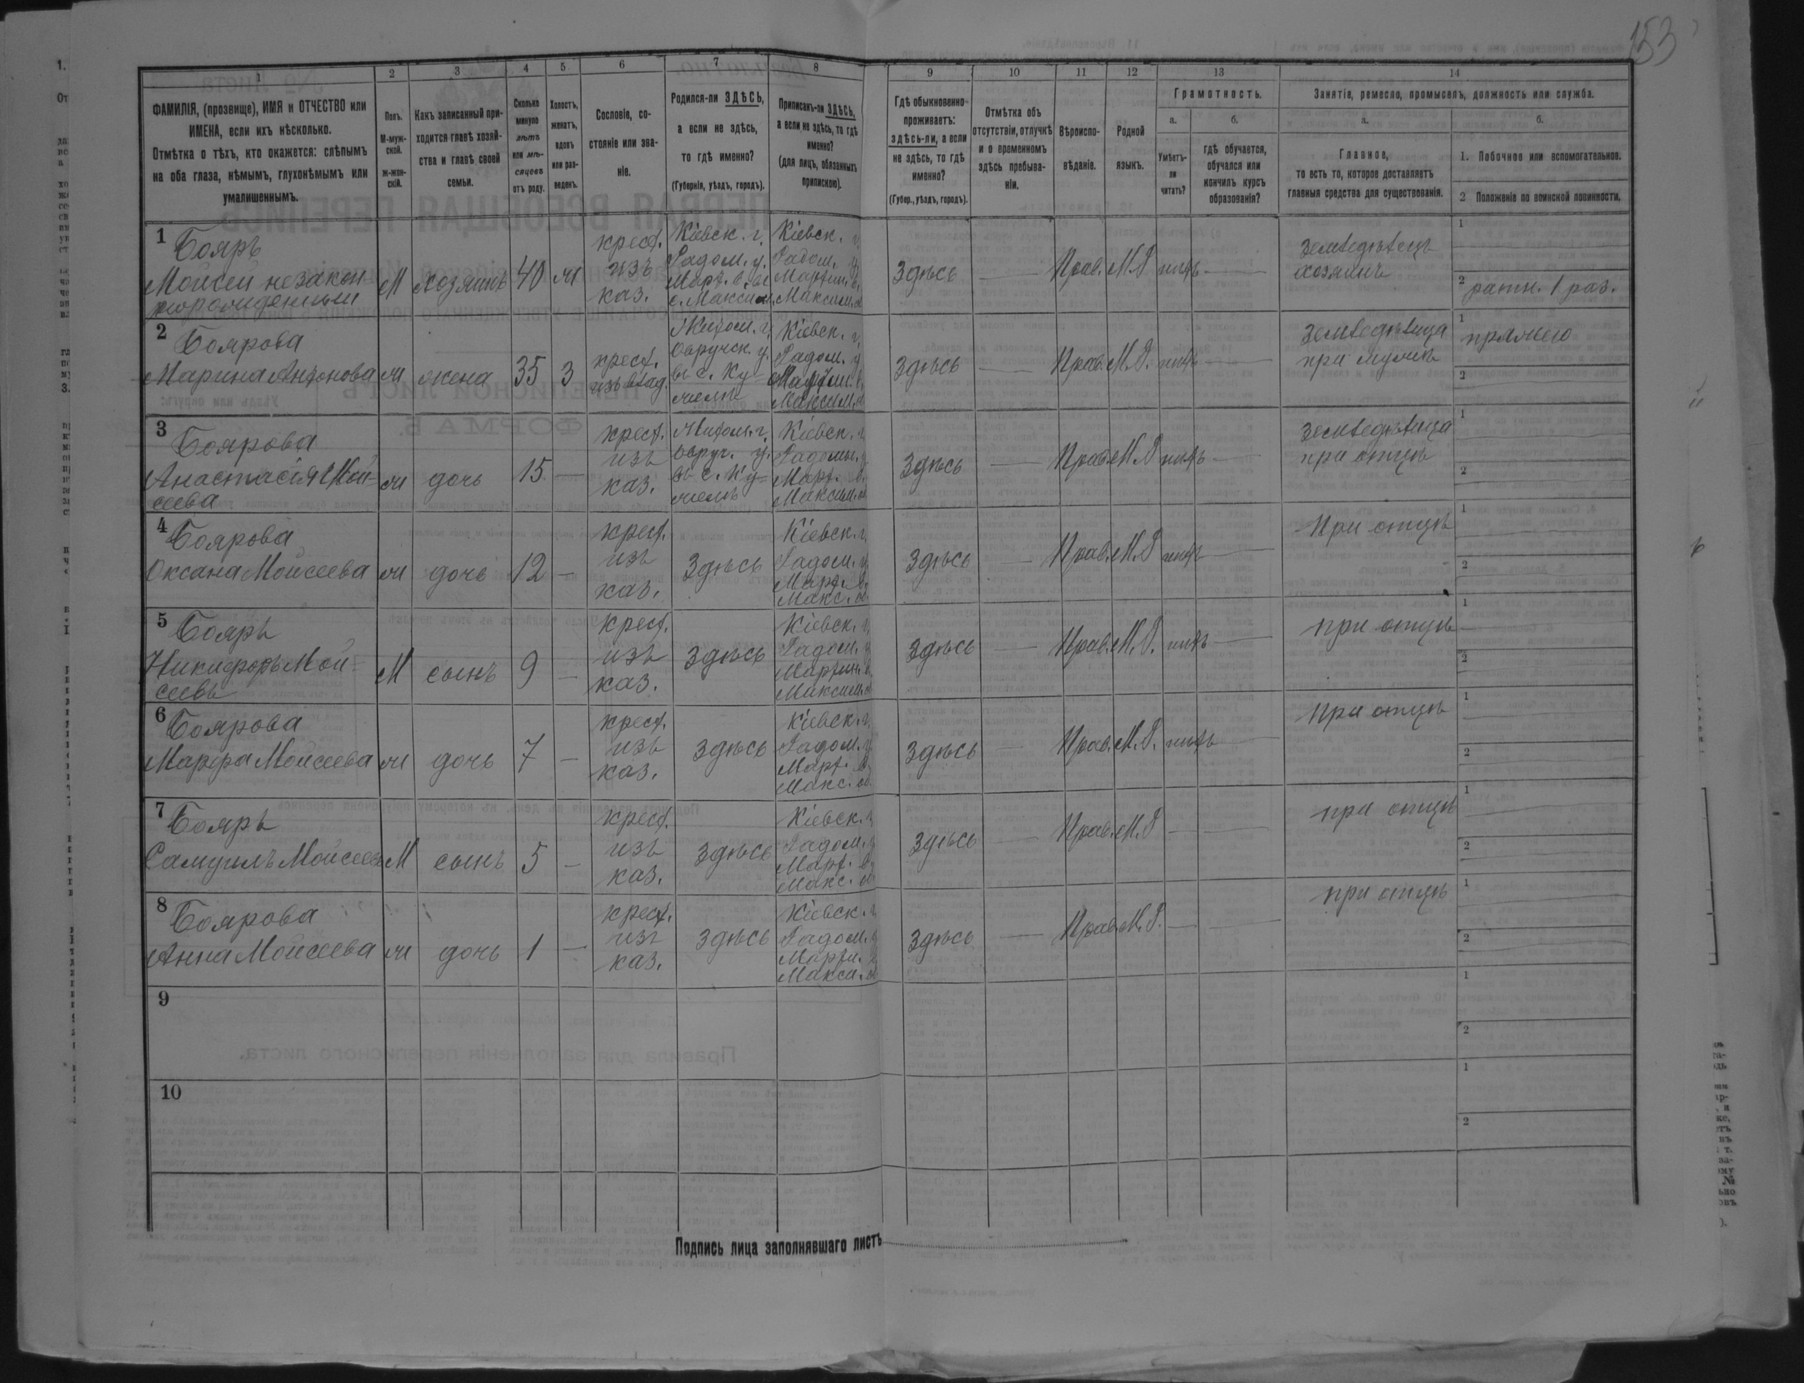 153
1 2 3 4 5 6 7 8 9 10 11 12 13 14
ФАМИЛІЯ, (прозвище), ИМЯ и ОТЧЕСТВО или
ИМЕНА, если ихъ нѣсколько.
Отмѣтка о тѣхъ, кто окажется: слѣпымъ
на оба глаза, нѣмымъ, глухонѣмымъ или
умалишеннымъ.
Полъ.
М-муж-
ской.
ж-жен-
скій.
Какъ записанный при-
ходится главѣ хозяй-
ства и главѣ своей
семьи.
Сколько
минуло
лѣтъ
или мѣ-
сяцевъ
отъ роду.
Холостъ,
женатъ,
вдовъ
или раз-
веденъ.
Сословіе, со-
стояніе или зва-
ніе.
Родился-ли ЗДѢСЬ,
а если не здѣсь,
то гдѣ именно?
(Губернія, уѣздъ, городъ).
Приписанъ-ли ЗДѢСЬ,
а если не здѣсь, то гдѣ
именно?
(для лицъ, обязанныхъ
припискою).
Гдѣ обыкновенно
проживаетъ:
здѣсь-ли, а если
не здѣсь, то гдѣ
именно?
(Губер., уѣздъ, городъ).
Отмѣтка объ
отсутствіи, отлучкѣ
и о временномъ
здѣсь пребыва-
ніи.
Вѣроиспо-
вѣданіе.
Родной
языкъ.
Грамотность.
а.
Умѣетъ-
ли
читать?
б.
гдѣ обучается,
обучался или
кончилъ курсъ
образованія?
Занятіе, ремесло, промыселъ, должность или служба.
а.
Главное,
то есть то, которое доставляетъ
главныя средства для существованія.
б.
1. Побочное или вспомогательное.
2 Положеніе по воинской повинности.
1
Бояръ
Мойсей незакон
норожденный
М хозяинъ 40 ж
крест.
изъ
каз.
Кіевск. г.
Радом. у.
Март. в.
с. Максим.
Кіевск. г.
Радом. у.
Мартин. в.
Максим.
Здѣсь — Прав. М.Р нѣтъ —
земледѣлецъ
хозяинъ
1
2 ратн. 1 раз.
2
Боярова
Марина Антонова
ж жена 35 З
крест.
Житом. г.
Овручск. у.
Кіевск. г.
Радом. у.
Максим.
Здѣсь — Прав. М.Р. нѣтъ
земледѣлица
при мужѣ
1 прялкею
2
3
Боярова
Анастасія Мой-
сеева
ж дочь 15 —
крест.
изъ
каз.
Житом. г.
Овруч. у.
Кіевск. г.
Радом. у.
Март. в.
Максим.
Здѣсь — Прав. М.Р нѣтъ —
земледѣлица
при отцѣ
1
2
4
Боярова
Оксана Мойсеева
ж дочь 12 —
крест.
изъ
каз.
Здѣсь
Кіевск. г.
Радом. у.
Март. в.
Макс.
Здѣсь — Прав. М.Р нѣтъ —
При отцѣ
1
2
5
Бояръ
Никифоръ Мой-
сеевъ
М сынъ 9 —
крест.
изъ
каз.
Здѣсь
Кіевск. г.
Радом. у.
Мартин. в.
Максим.
Здѣсь — Прав. М.Р. нѣтъ —
при отцѣ
1
2
6
Боярова
Марфа Мойсеева
ж дочь 7 —
крест.
изъ
каз.
Здѣсь
Кіевск. г.
Радом. у.
Март. в.
Макс.
Здѣсь — Прав. М.Р. нѣтъ —
При отцѣ
1
2
7
Бояръ
Самуилъ Мойсеевъ
М сынъ 5 —
крест.
изъ
каз.
Здѣсь
Кіевск. г.
Радом. у.
Март. в.
Макс.
Здѣсь — Прав. М.Р — —
при отцѣ
1
2
8
Боярова
Анна Мойсеева
ж дочь 1 —
крест.
изъ
каз.
Здѣсь
Кіевск. г.
Радом. у.
Марти.
Макси.
Здѣсь — Прав. М.Р. — —
при отцѣ
1
2
9
1
2
10
1
2
Подпись лица заполнявшаго листъ